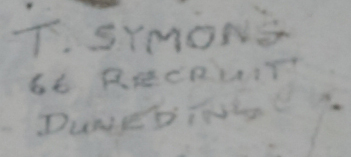 T. SYMONS
66 RECRUIT
DUNEDIN